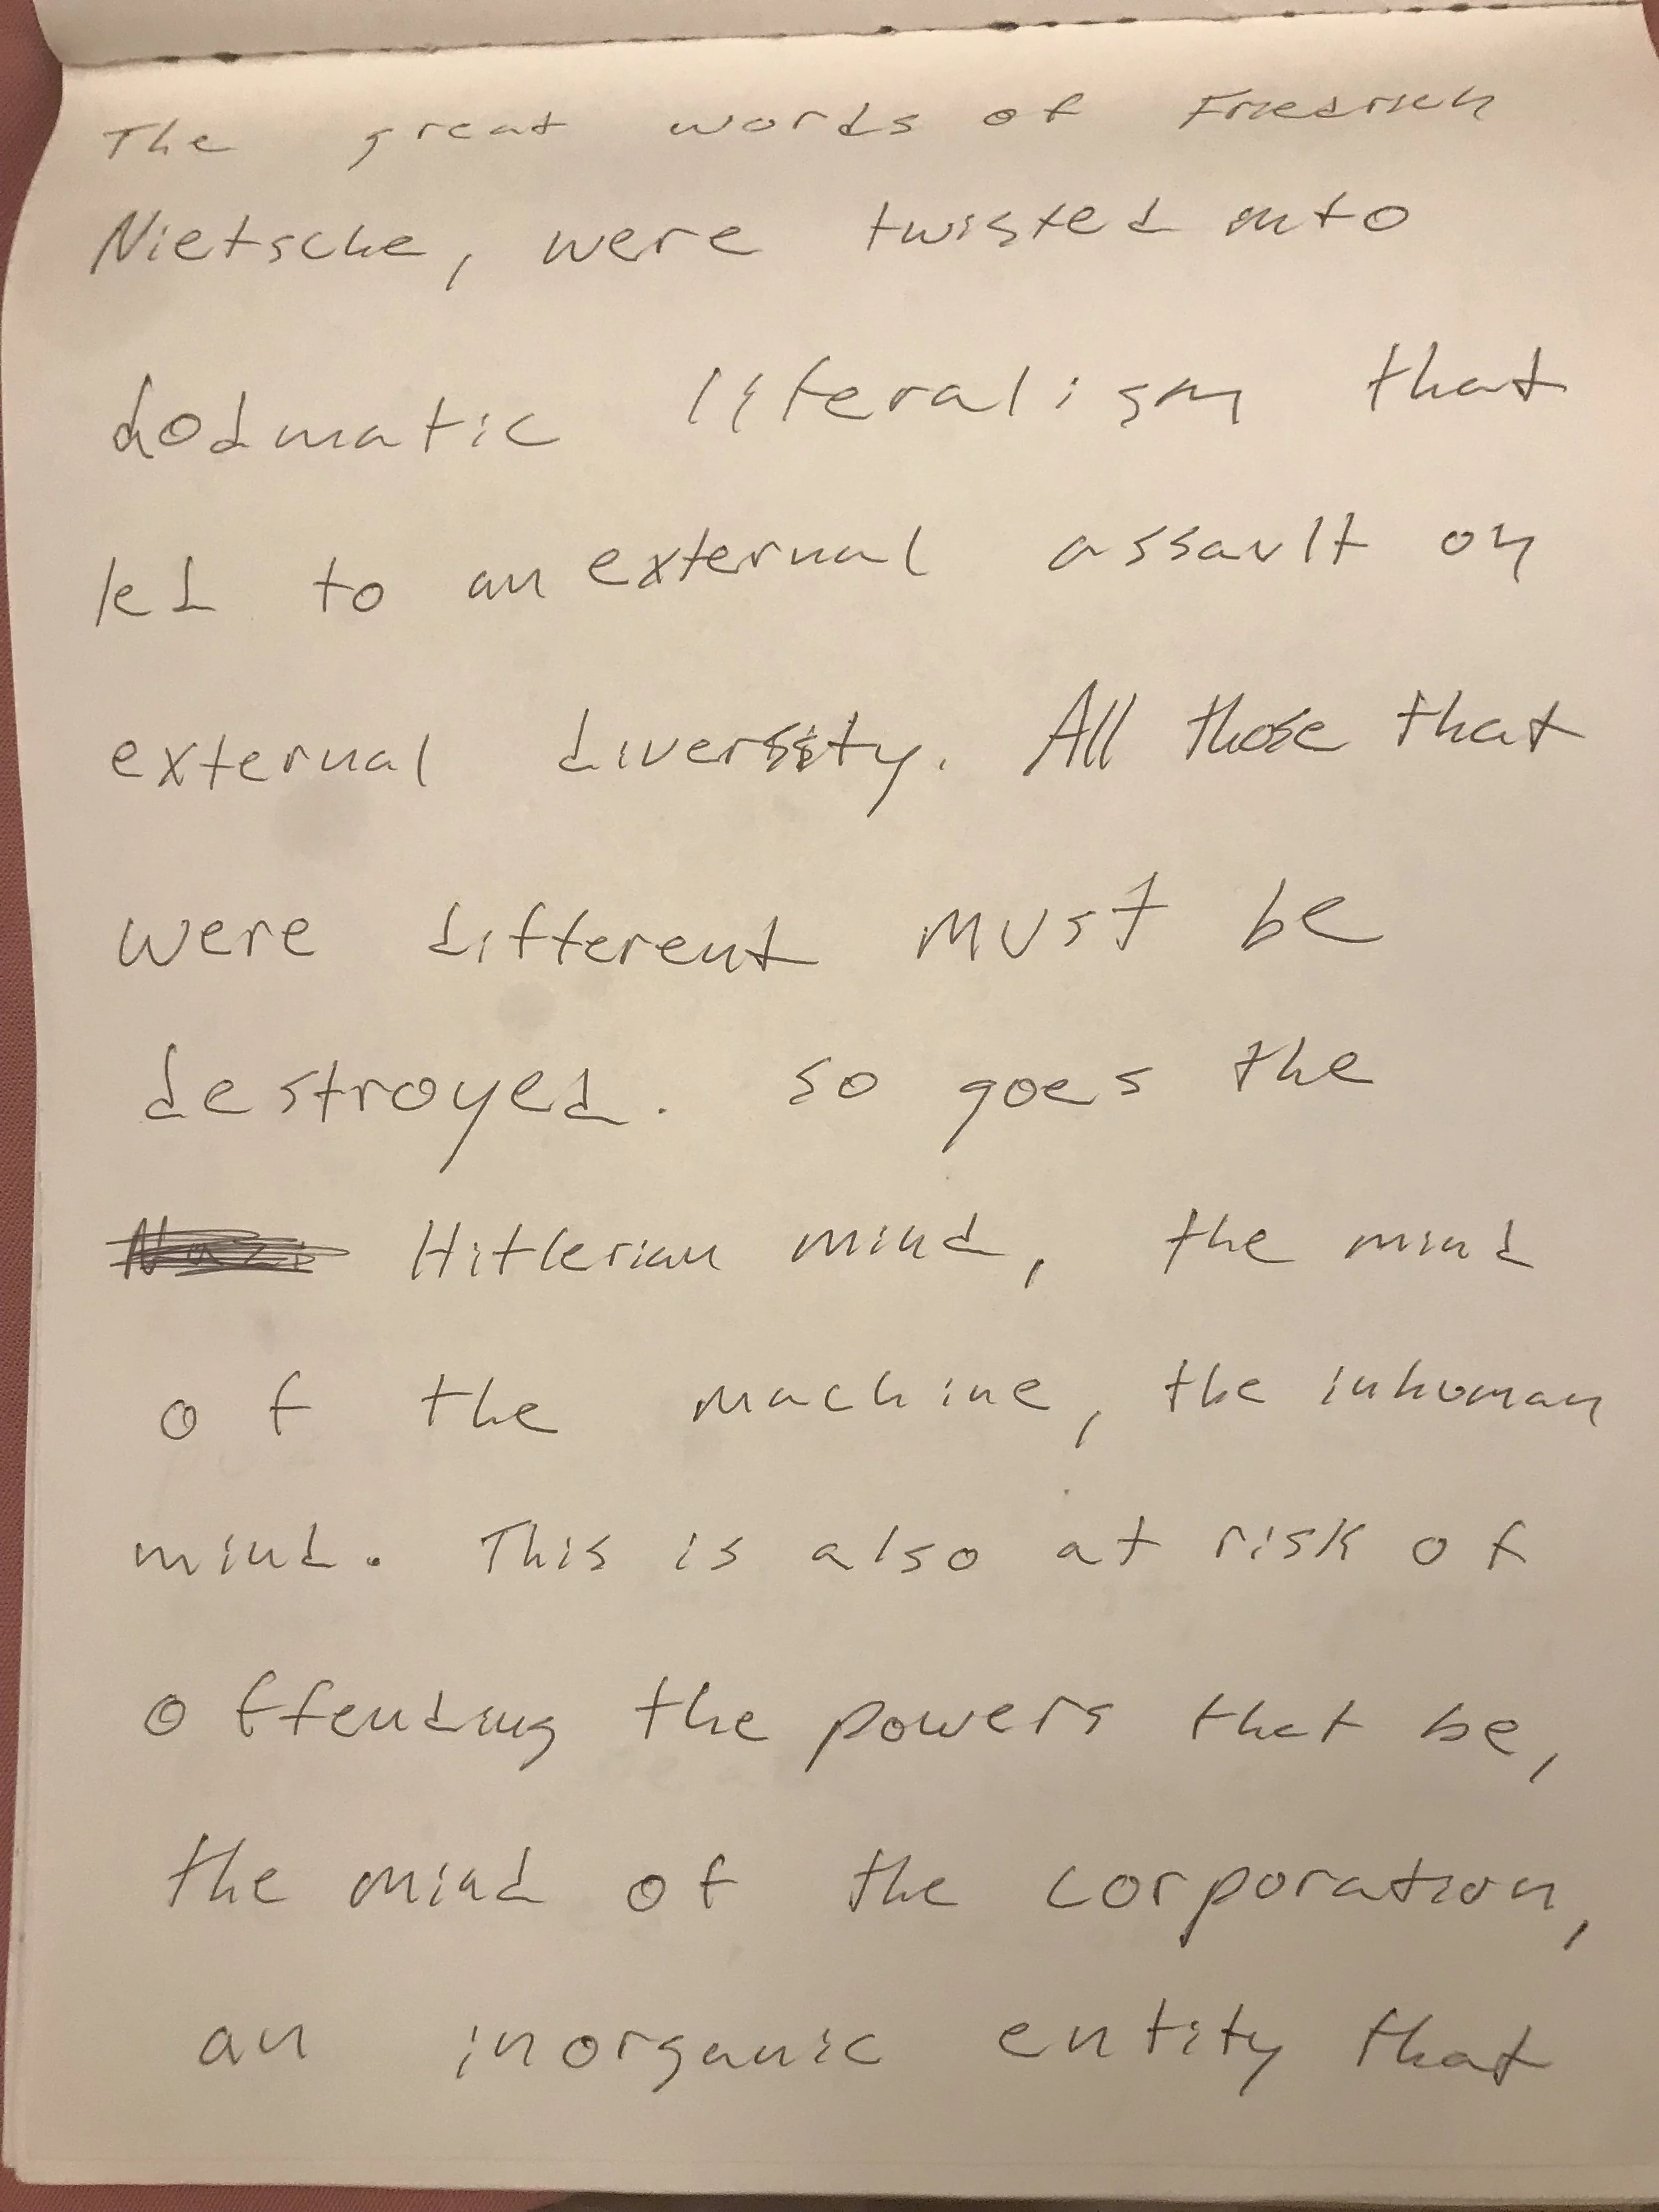 The great words of Friedrich
Nietsche, were twisted into
dodmatic literalism that
led to an external assault on
external diversity. All those that
were different must be
destroyed. so goes the
Nazi Hitlerian mind, the mind
of the machine, the inhuman
mind. This is also at risk of
offending the powers that be,
the mind of the corporation,
an inorganic entity that